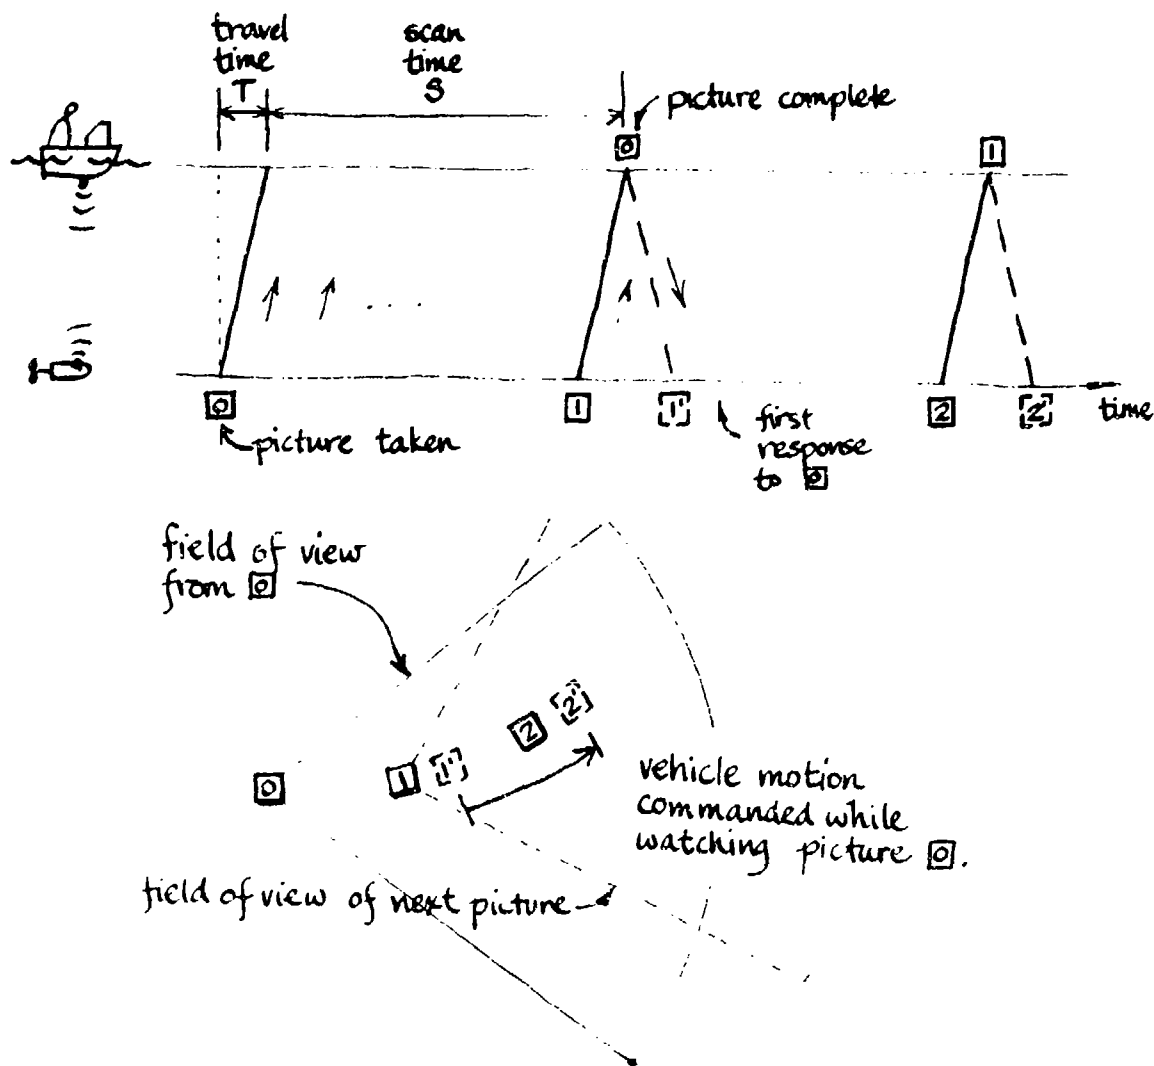 travel
time
T
scan
time
S
picture complete
0
1
0
1
1'
2
2'
time
picture taken
first
response
to 0
field of view
from 0
0
1
1'
2
2'
vehicle motion
commanded while
watching picture 0.
field of view of next picture